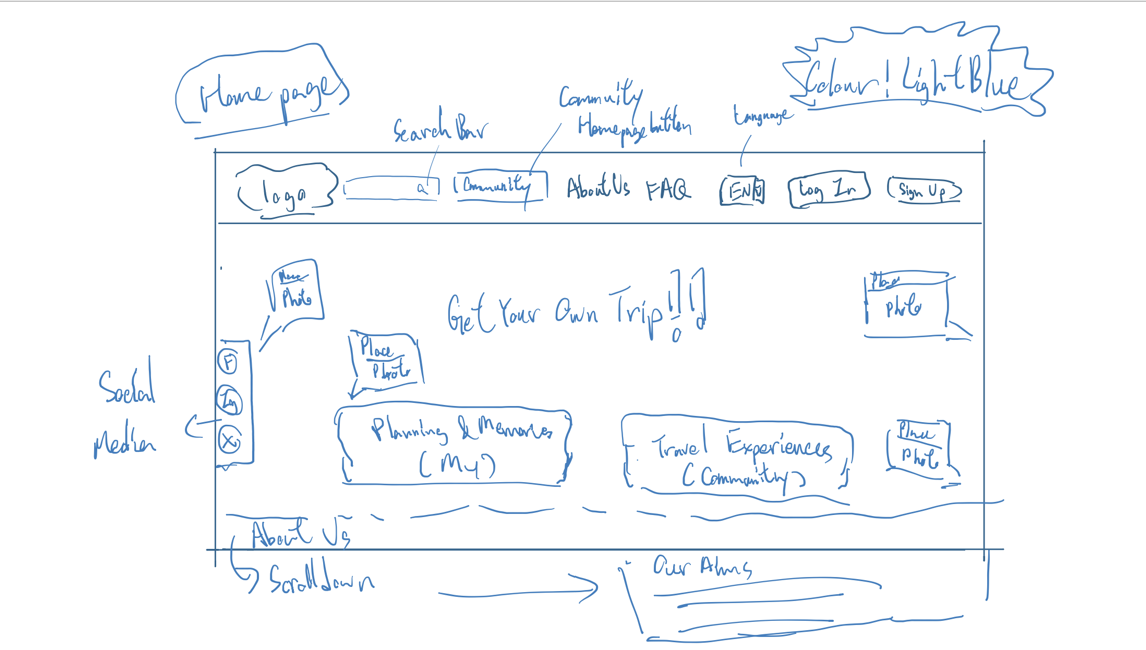 Home page
Colour! Light Blue
Search Bar
Community
Homepage button
Language
logo
Community
About Us
FAQ
EN
Log In
Sign Up
Place
Photo
Get Your Own Trip!!!
Place
Photo
Place
Photo
F
Ig
X
Social
Media
Planning & Memories
(My)
Travel Experiences
(Community)
Place
Photo
About Us
Scrolldown
Our Aims